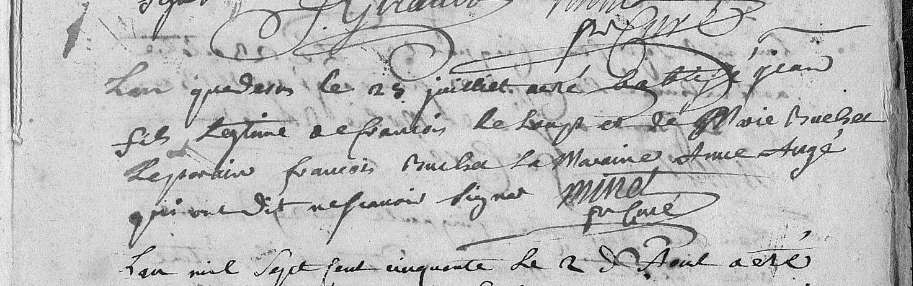 J Giraud mina
pr Curé
Lan que desus le 25 juillet aeté batisé jean
fils Legitime de francois Le Loup et de Marie Buchet
Le parain francois Buchet La Maraine Anne Augé
qui ont dit ne scavoir signer mina
pr Curé
Lan mil Sept Cent cinquante le 2 d Aout a eté